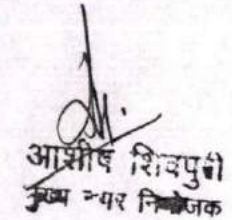 आशीष शिवपुरी
मुख्य नगर नियोजक